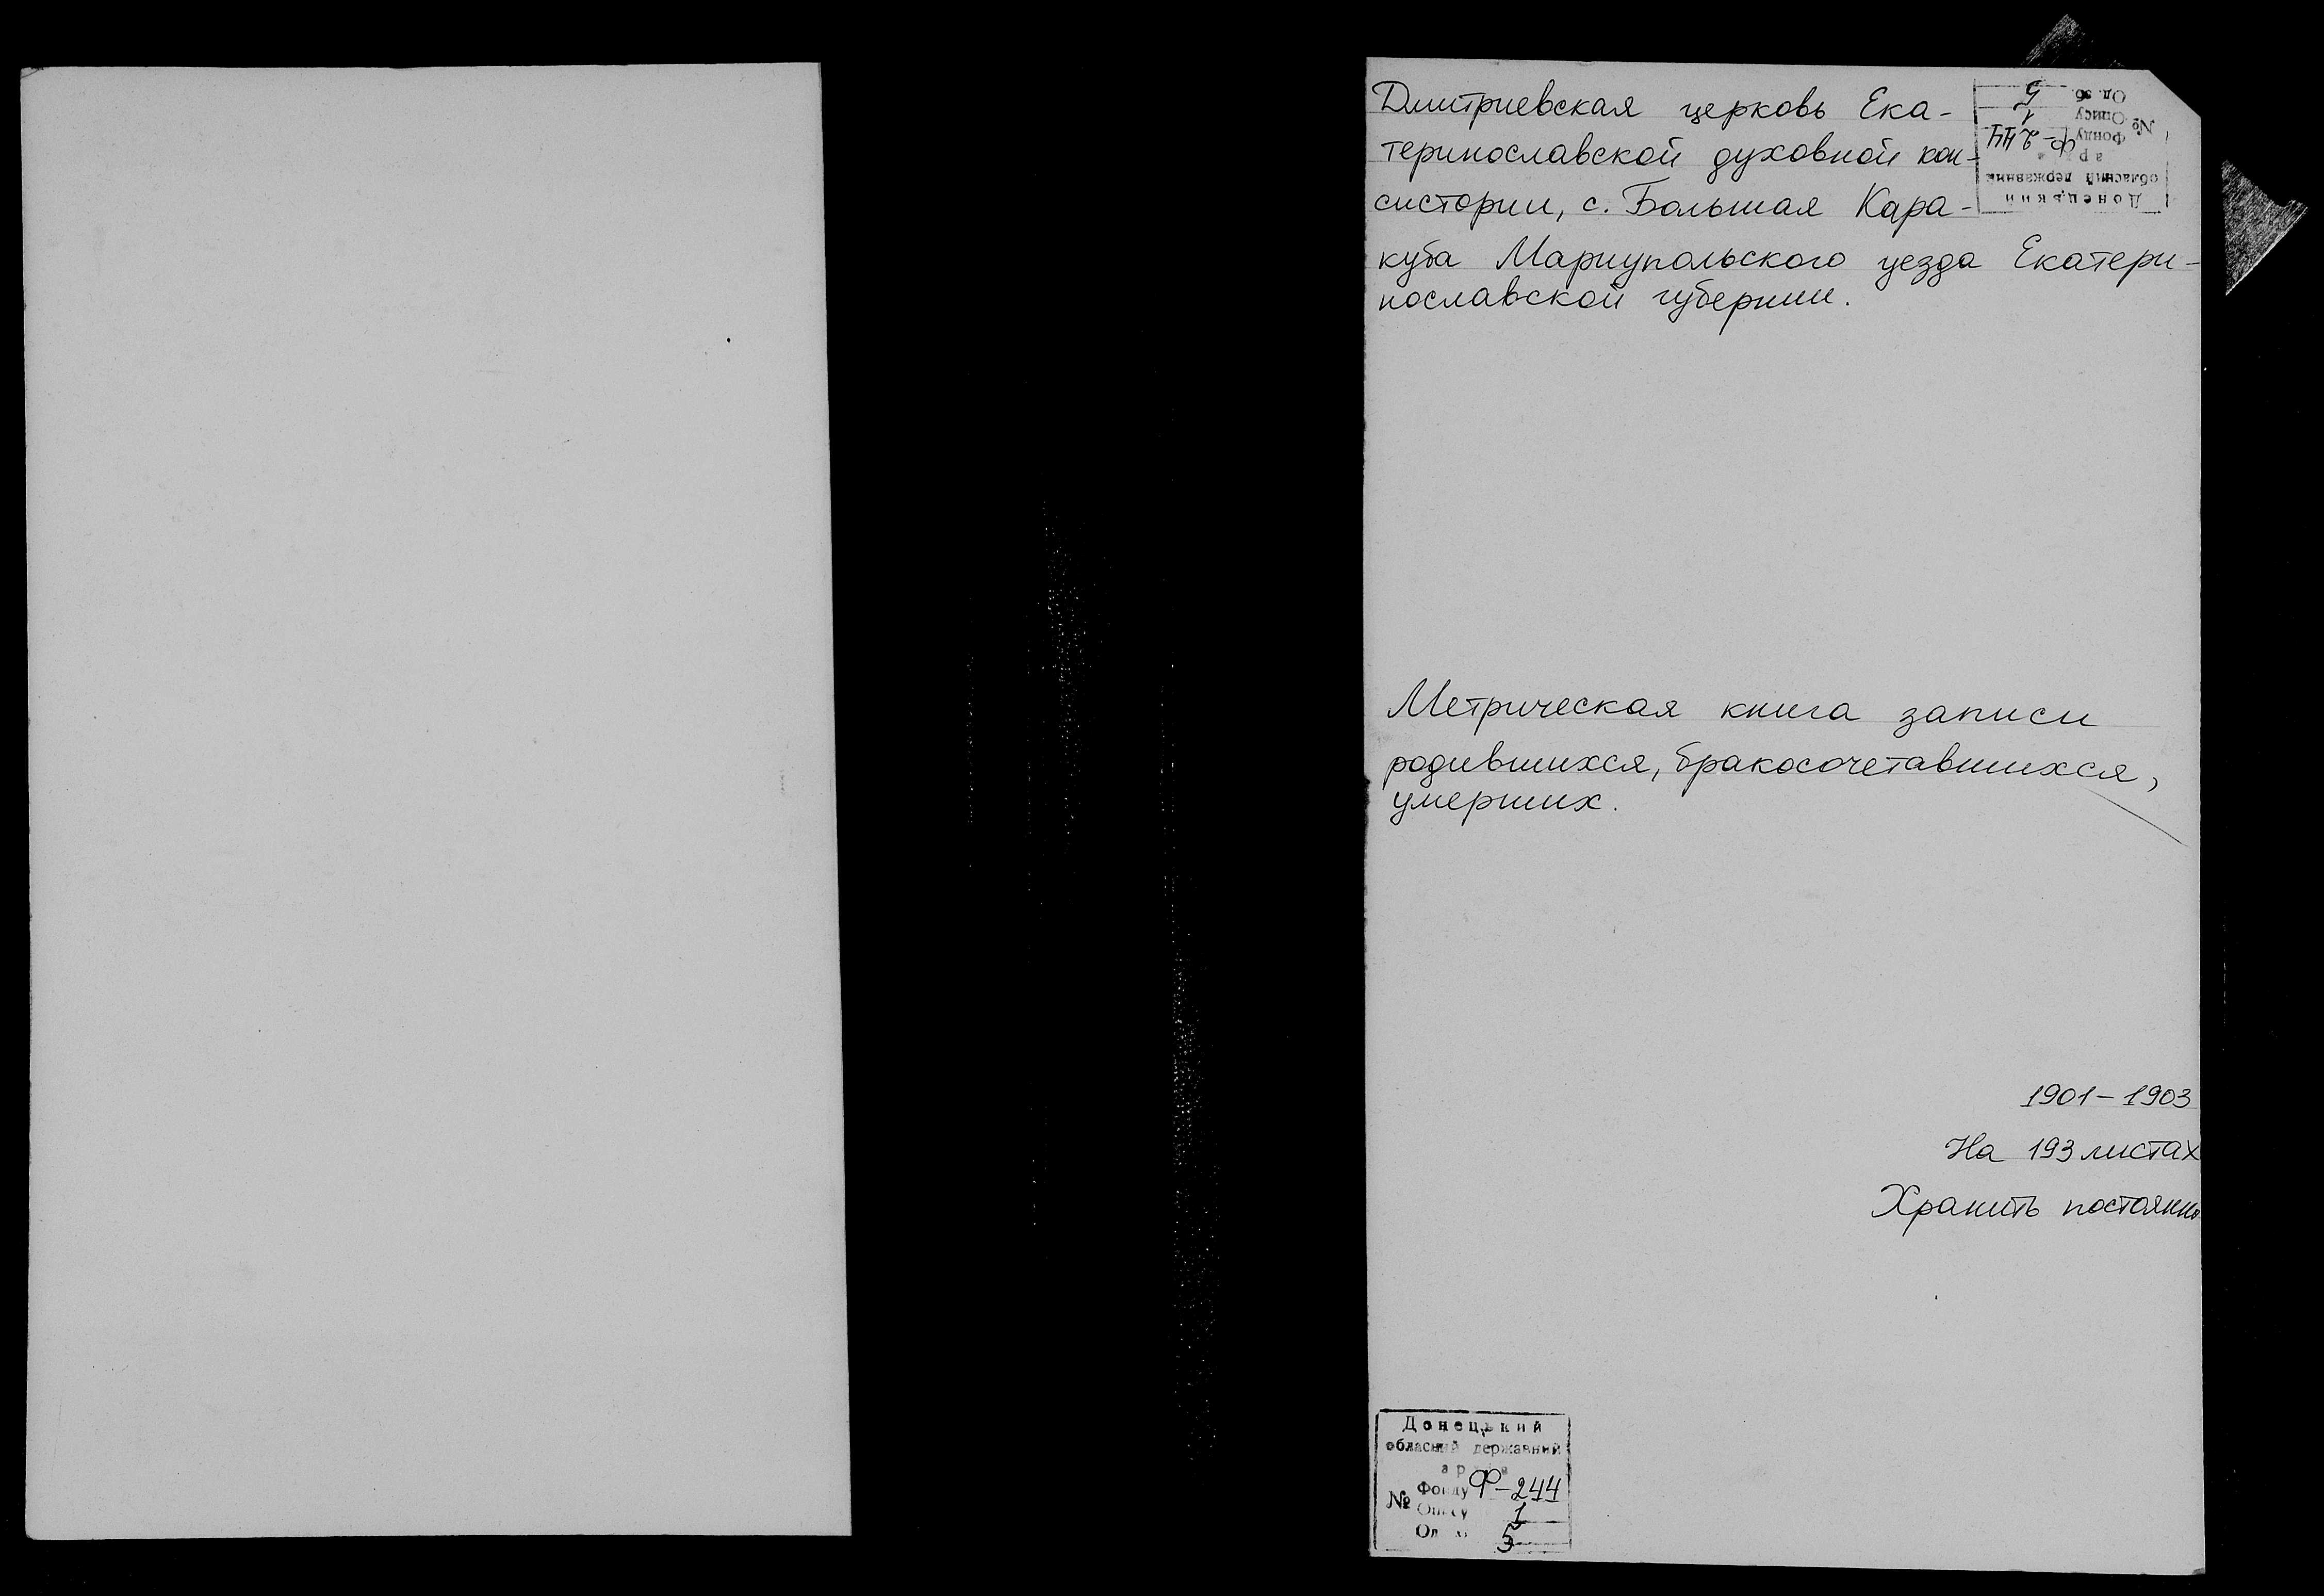 Дмитриевская церковь Ека-
теринославской духовной кон-
систории, с. Большая Кара-
куба Мариупольского уезда Екатери-
нославской губернии.
Донецький
обласний державний
архів
№ Фонду Ф-244
Опису 1
Од. зб. 5
Метрическая книга записи
родившихся, бракосочетавшихся,
умерших.
1901-1903
На 193 листах
Хранить постоянно
Донецький
обласний державний
архів
№ Фонду Ф-244
Опису 1
Од. зб. 5